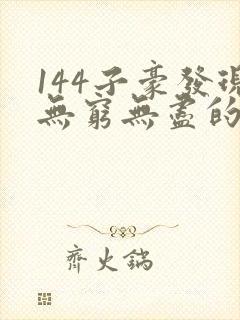 144子豪發現
無窮無盡的
齊火鍋